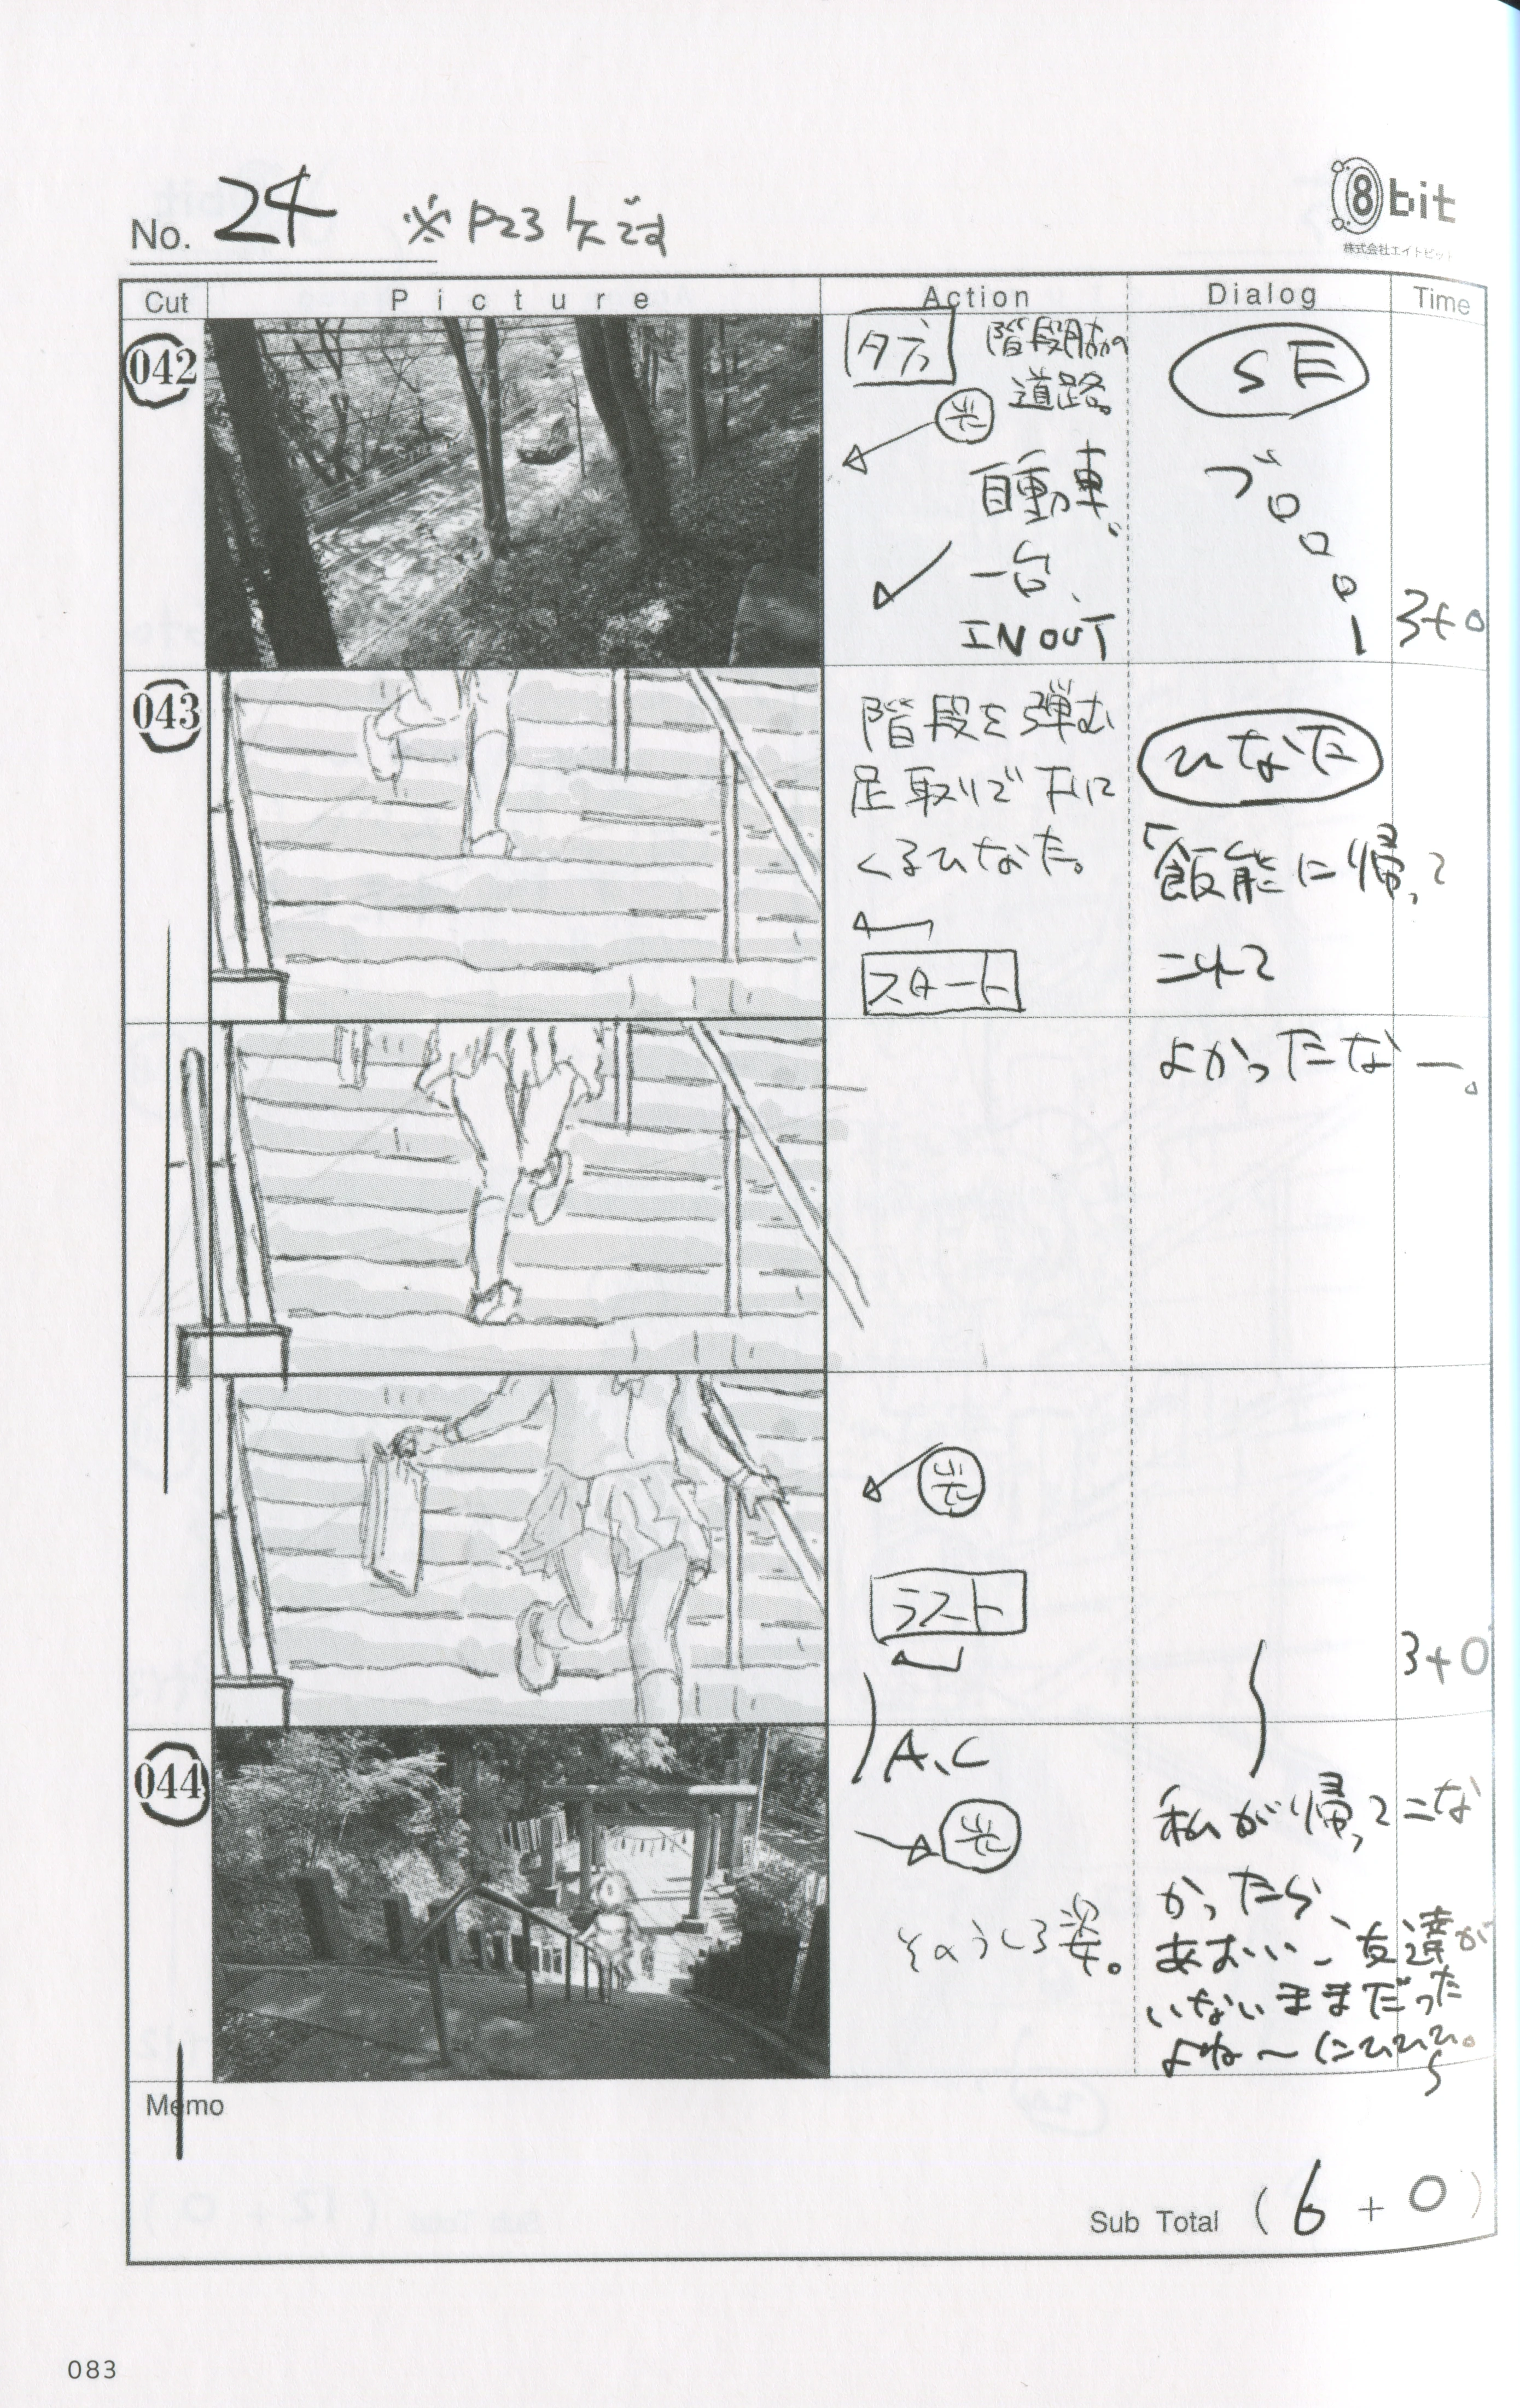 No. 24 ※P23 欠です
8bit
株式会社エイトビット
Cut Picture Action Dialog Time
042
タ方
階段脇の
道路。
光
自動車、
一台、
IN OUT
SE
ブロロロー
3+0
043
階段を弾む
足取りで下に
くるひなた。
スタート
ひなた
「飯能に帰って
これて
よかったなー。
光
ラスト
3+0
A.C
044
光
そのうしろ姿。
私が帰ってこな
かったら、
あおい、友達が
いないままだった
よね〜にひひひ。
Memo
Sub Total ( 6 + 0 )
083